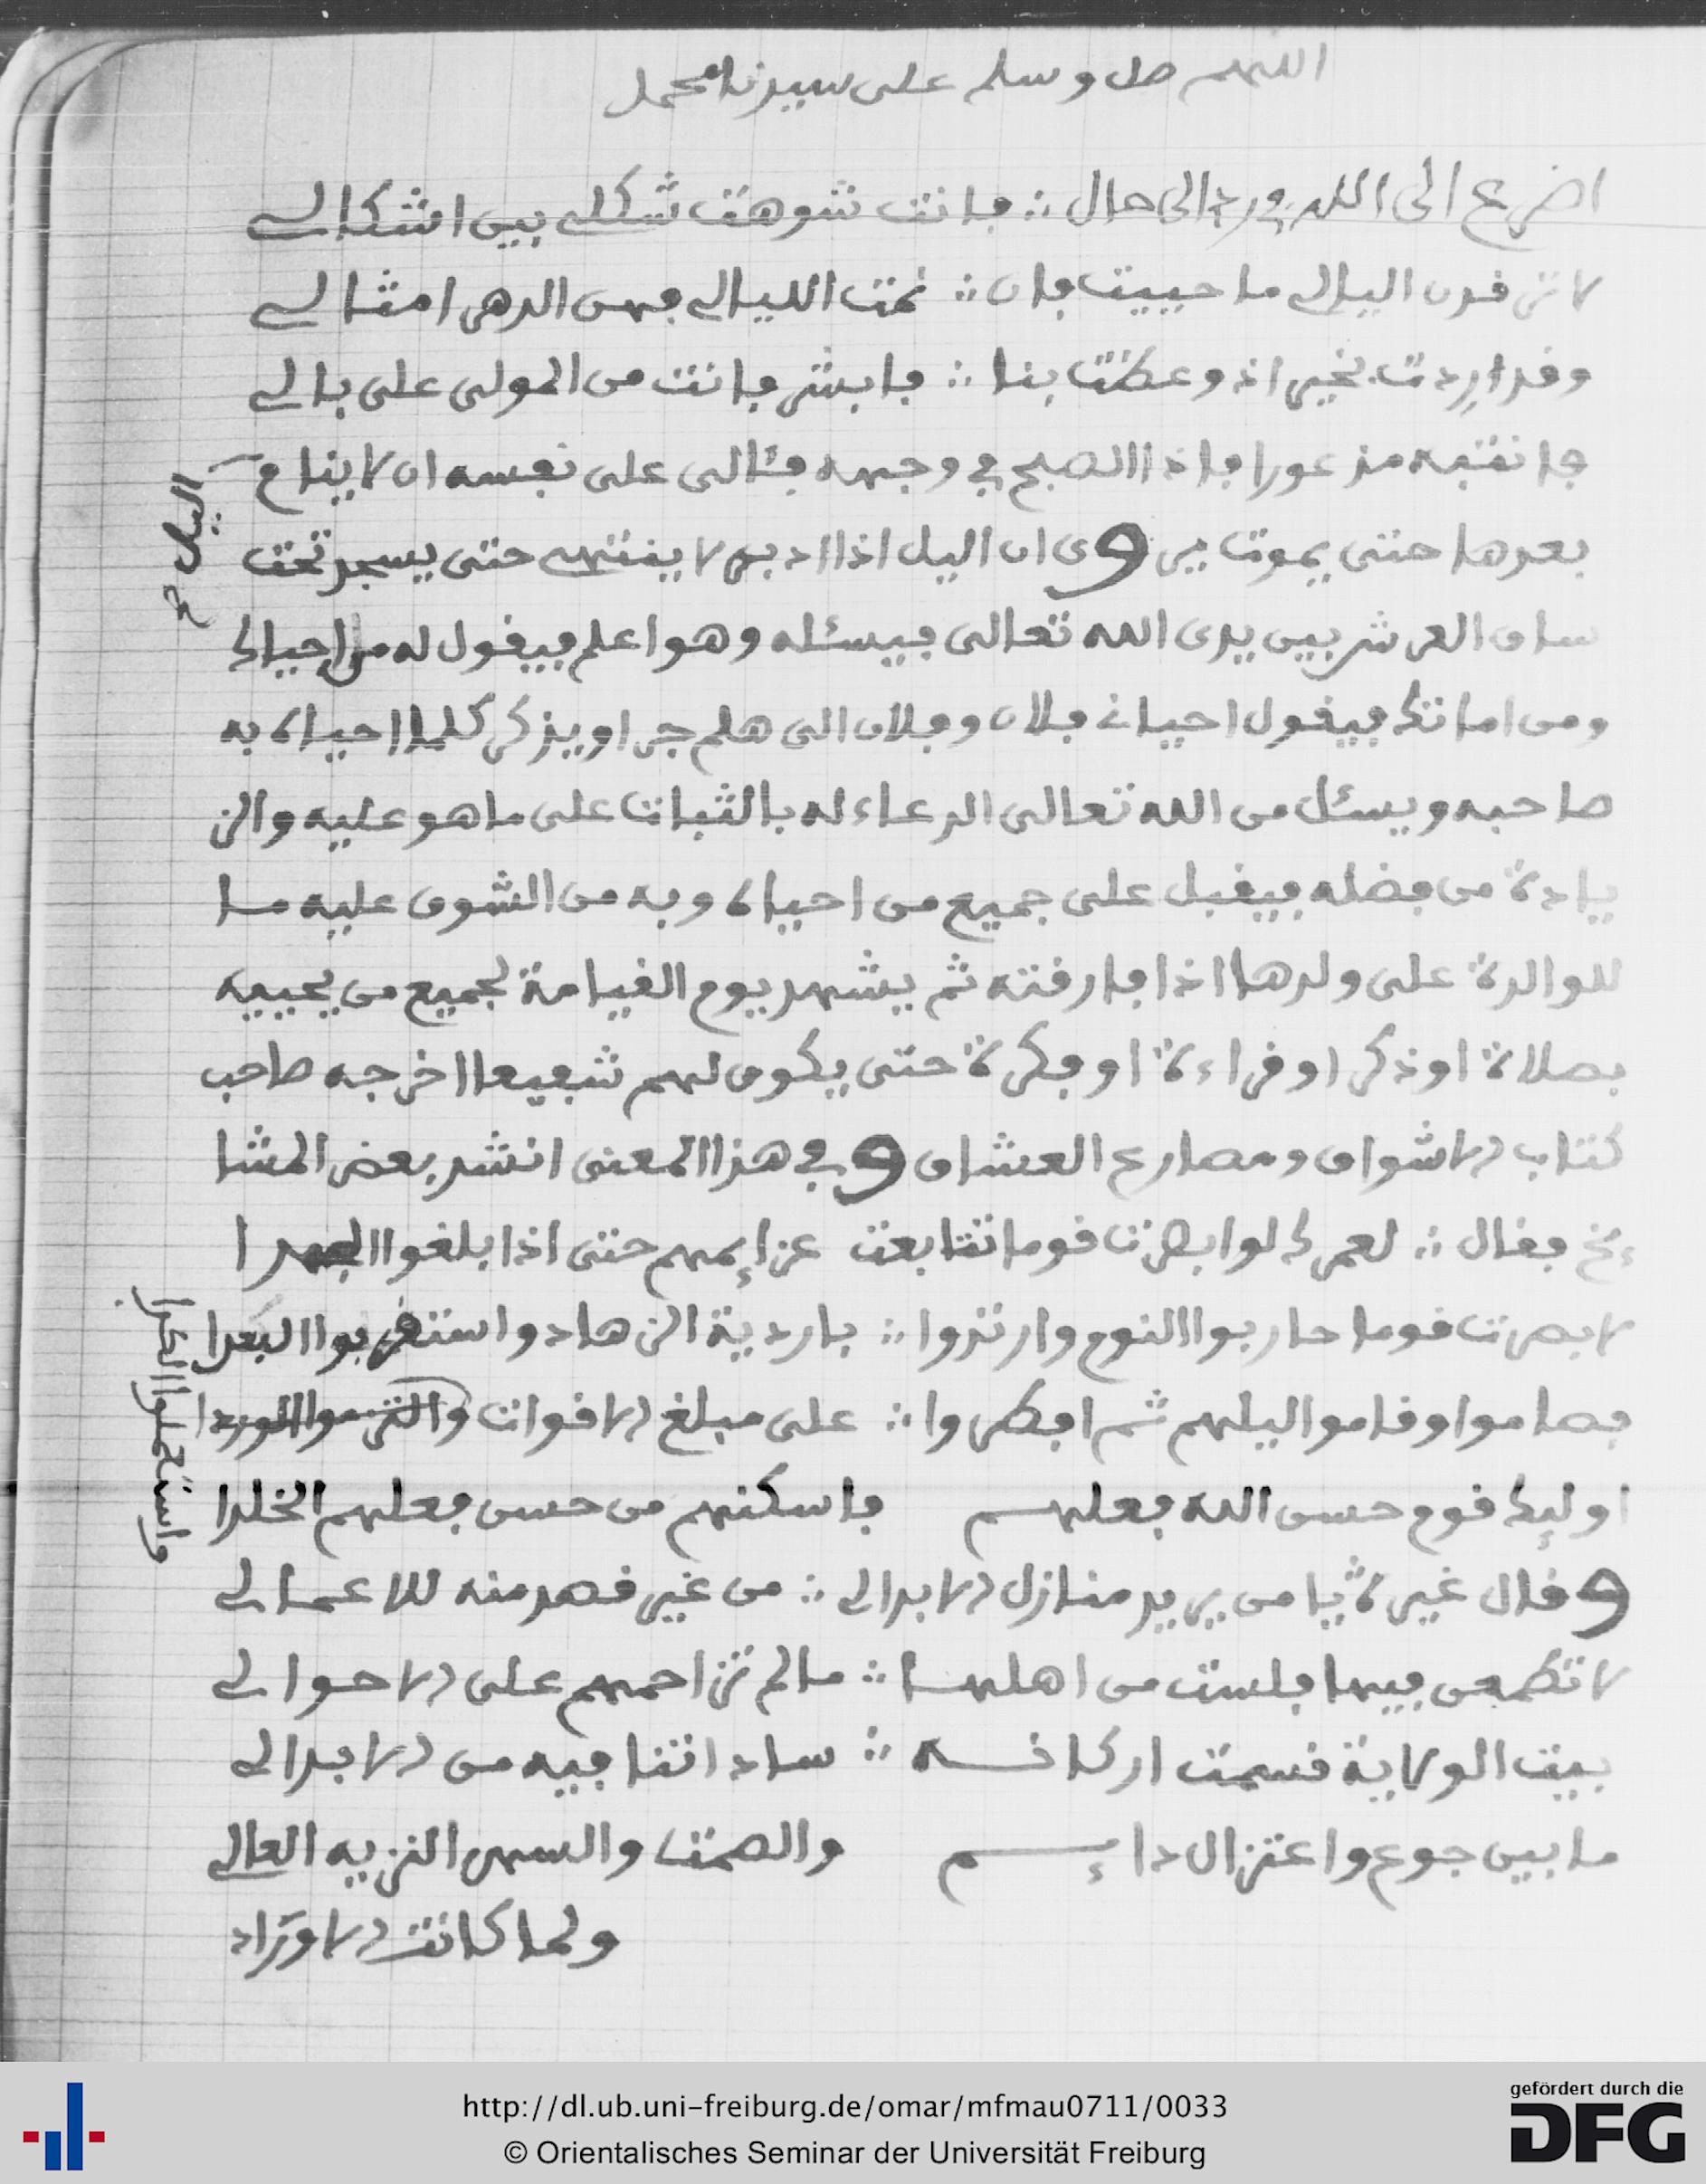 اللهم صل وسلم على سيدنا محمد
اضرع الى الله في ردى الى حال ∴ فانت شوهت شكلي بين اشكالي
لا ترقدن اليالي ما حييت فان ∴ نمت الليالي فهن الدهر امثالي
وقد اردت بخير اذ وعظت بنا ∴ فابشر فانت من المولى على بالي
فانتبه مذعورا فاذا الصبح في وجهه فئالى على نفسه ان لا ينام اليل
بعدها حتى يموت وى ان اليل اذا ادبر لا ينتهي حتى يسجد تحت
ساق العرش بين يدى الله تعالى فيسئله وهو اعلم فيقول له من احياك
ومن اماتك فيقول احياني فلان وفلان الى هلم جرا ويذكر كلما احياه به
صاحبه ويسئل من الله تعالى الدعاء له بالثبات على ما هو عليه والز
يادة من فضله فيقبل على جميع من احياه وبه من الشوق عليه ما
للوالدة على ولدها اذا فارقته ثم يشهد يوم القيامة لجميع من يحييه
بصلاة او ذكر او قراءة او فكرة حتى يكون لهم شفيعا اخرجه صاحب
كتاب الاشواق ومصارع العشاق وفي هذا المعنى انشد بعض المشا
ئخ فقال ∴ لعمرك لو ابصرت قوما تتابعت عزائمهم حتى اذا بلغوا الجهدا
لابصرت قوما حاربوا النوم وارتدوا ∴ باردية الزهاد واستقربوا البعدا
فصاموا وقاموا ليلهم ثم افطروا ∴ على مبلغ الاقوات والتزموا الوردا
واستحملوا الكدا
اوليك قوم حسن الله فعلهم فاسكنهم من حسن فعلهم الخلدا
وقال غيره يا من يريد منازل الابدال ∴ من غير قصد منه للاعمالي
لا تطمعن فيها فلست من اهلها ∴ ما لم تزاحمهم على الاحوالي
بيت الولاية قسمت اركانه ∴ ساداتنا فيه من الابدالي
ما بين جوع واعتزال دائم والصمت والسهر النزيه العالي
ولما كانت الاوراد
http://dl.ub.uni-freiburg.de/omar/mfmau0711/0033
© Orientalisches Seminar der Universität Freiburg
gefördert durch die
DFG